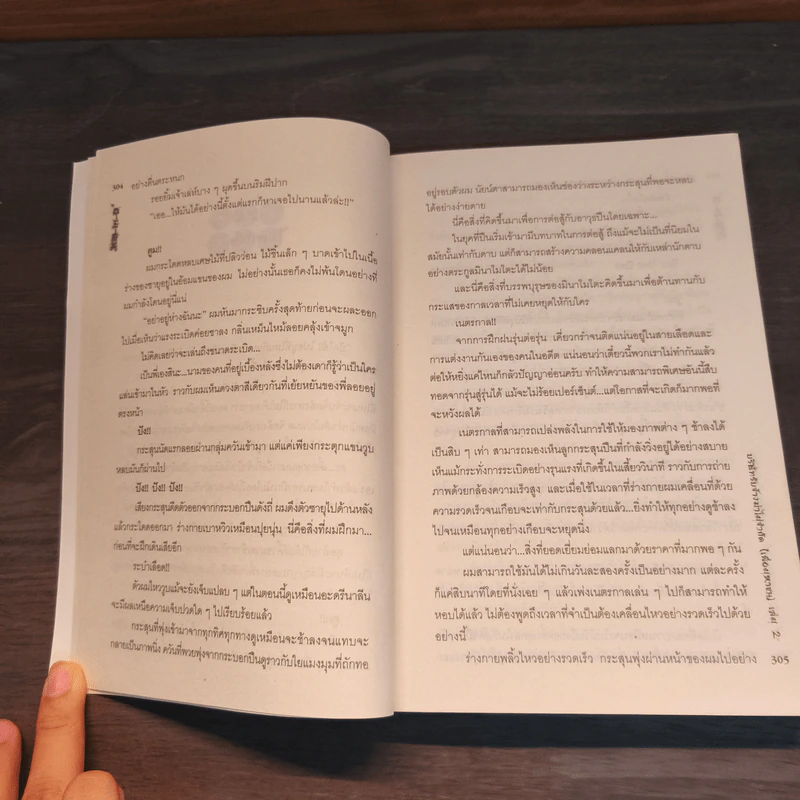 304 อย่างตื่นตระหนก
รอยยิ้มเจ้าเล่ห์บาง ๆ ผุดขึ้นบนริมฝีปาก
"เธอ...ให้มันได้อย่างนี้ตั้งแต่แรกก็หาเจอไปนานแล้วล่ะ!!"
ตูม!!
ผมกระโดดหลบเศษไม้ที่ปลิวว่อน ไม้ชิ้นเล็ก ๆ บาดเข้าไปในเนื้อ
ร่างของชายุอยู่ในอ้อมแขนของผม ไม่อย่างนั้นเธอก็คงไม่พ้นโดนอย่างที่
ผมกำลังโดนอยู่นี่แน่
"อย่าอยู่ห่างฉันนะ" ผมหันมากระซิบครั้งสุดท้ายก่อนจะผละออก
ไปเมื่อเห็นว่าแรงระเบิดค่อยซาลง กลิ่นเหม็นไหม้ลอยคลุ้งเข้าจมูก
ไม่คิดเลยว่าจะเล่นถึงขนาดระเบิด...
เป็นพี่เองสินะ...นามของคนที่อยู่เบื้องหลังซึ่งไม่ต้องเดาก็รู้ว่าเป็นใคร
แล่นเข้ามาในหัว ราวกับผมเห็นดวงตาสีเดียวกันที่เย้ยหยันของพี่ลอยอยู่
ตรงหน้า
ปัง!!
กระสุนนัดแรกลอยผ่านกลุ่มควันเข้ามา แต่แค่เพียงกระตุกแขนวูบ
หลบมันก็ผ่านไป
ปัง!! ปัง!! ปัง!!
เสียงกระสุนดีดตัวออกจากกระบอกปืนดังถี่ ผมดึงตัวชายุไปด้านหลัง
แล้วกระโดดออกมา ร่างกายเบาหวิวเหมือนปุยนุ่น นี่คือสิ่งที่ผมฝึกมา...
ก่อนที่จะฝึกเดินเสียอีก
ระบำเลือด!!
ตัวผมไหววูบแม้จะยังเจ็บแปลบ ๆ แต่ในตอนนี้ดูเหมือนอะดรีนาลีน
จะมีผลเหนือความเจ็บปวดใด ๆ ไปเรียบร้อยแล้ว
กระสุนที่พุ่งเข้ามาจากทุกทิศทุกทางดูเหมือนจะช้าลงจนแทบจะ
กลายเป็นภาพนิ่ง ควันที่พวยพุ่งจากกระบอกปืนดูราวกับใยแมงมุมที่ถักทอ
อยู่รอบตัวผม นัยน์ตาสามารถมองเห็นช่องว่างระหว่างกระสุนที่พอจะหลบ
ได้อย่างง่ายดาย
นี่คือสิ่งที่คิดขึ้นมาเพื่อการต่อสู้กับอาวุธปืนโดยเฉพาะ...
ในยุคที่ปืนเริ่มเข้ามามีบทบาทในการต่อสู้ ถึงแม้จะไม่เป็นที่นิยมใน
สมัยนั้นเท่ากับดาบ แต่ก็สามารถสร้างความคลอนแคลนให้กับเหล่านักดาบ
อย่างตระกูลมินาโมโตะได้ไม่น้อย
และนี่คือสิ่งที่บรรพบุรุษของมินาโมโตะคิดขึ้นมาเพื่อต้านทานกับ
กระแสของกาลเวลาที่ไม่เคยหยุดให้กับใคร
เนตรกาล!!
จากการฝึกฝนรุ่นต่อรุ่น เคี่ยวกรำจนติดแน่นอยู่ในสายเลือดและ
การแต่งงานกันเองของคนในอดีต แน่นอนว่าเดี๋ยวนี้พวกเราไม่ทำกันแล้ว
ต่อให้หยิ่งแค่ไหนก็กลัวปัญญาอ่อนครับ ทำให้ความสามารถพิเศษอันนี้สืบ
ทอดจากรุ่นสู่รุ่นได้ แม้จะไม่ร้อยเปอร์เซ็นต์...แต่โอกาสที่จะเกิดก็มากพอที่
จะหวังผลได้
เนตรกาลที่สามารถเปล่งพลังในการใช้ให้มองภาพต่าง ๆ ช้าลงได้
เป็นสิบ ๆ เท่า สามารถมองเห็นลูกกระสุนปืนที่กำลังวิ่งอยู่ได้อย่างสบาย
เห็นแม้กระทั่งการระเบิดอย่างรุนแรงที่เกิดขึ้นในเสี้ยววินาที ราวกับการถ่าย
ภาพด้วยกล้องความเร็วสูง และเมื่อใช้ในเวลาที่ร่างกายผมเคลื่อนที่ด้วย
ความรวดเร็วจนเกือบจะเท่ากับกระสุนด้วยแล้ว...ยิ่งทำให้ทุกอย่างดูช้าลง
ไปจนเหมือนทุกอย่างเกือบจะหยุดนิ่ง
แต่แน่นอนว่า...สิ่งที่ยอดเยี่ยมย่อมแลกมาด้วยราคาที่มากพอ ๆ กัน
ผมสามารถใช้มันได้ไม่เกินวันละสองครั้งเป็นอย่างมาก แต่ละครั้ง
ก็แค่สิบนาทีโดยที่นั่งเฉย ๆ แล้วเพ่งเนตรกาลเล่น ๆ ไปก็สามารถทำให้
หอบได้แล้ว ไม่ต้องพูดถึงเวลาที่จำเป็นต้องเคลื่อนไหวอย่างรวดเร็วไปด้วย
อย่างนี้
ร่างกายพลิ้วไหวอย่างรวดเร็ว กระสุนพุ่งผ่านหน้าของผมไปอย่าง 305